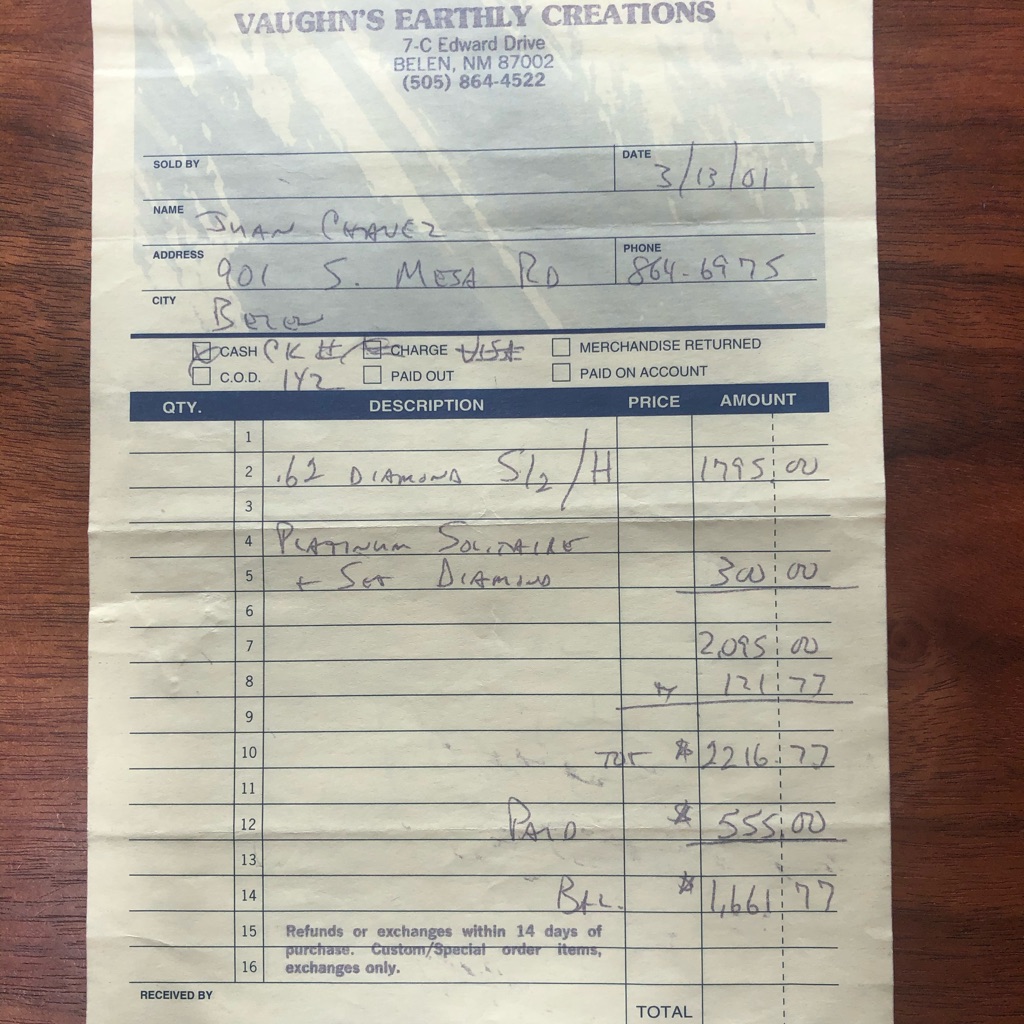 VAUGHN'S EARTHLY CREATIONS
7-C Edward Drive
BELEN, NM 87002
(505) 864-4522
SOLD BY
DATE 3/13/01
NAME JUAN CHAVEZ
ADDRESS 901 S. MESA RD
PHONE 864-6975
CITY BELEN
CASH CK # CHARGE VISA MERCHANDISE RETURNED
C.O.D. 142 PAID OUT PAID ON ACCOUNT
QTY. DESCRIPTION PRICE AMOUNT
1
2 .62 DIAMOND SI2/H 1795.00
3
4 PLATINUM SOLITAIRE
5 + SET DIAMOND 300 00
6
7 2,095 00
8 121 77
9
10 TOT $ 2216.77
11
12 PAID $ 555.00
13
14 BAL. $ 1,661 77
15 Refunds or exchanges within 14 days of
purchase. Custom/Special order items,
16 exchanges only.
RECEIVED BY
TOTAL